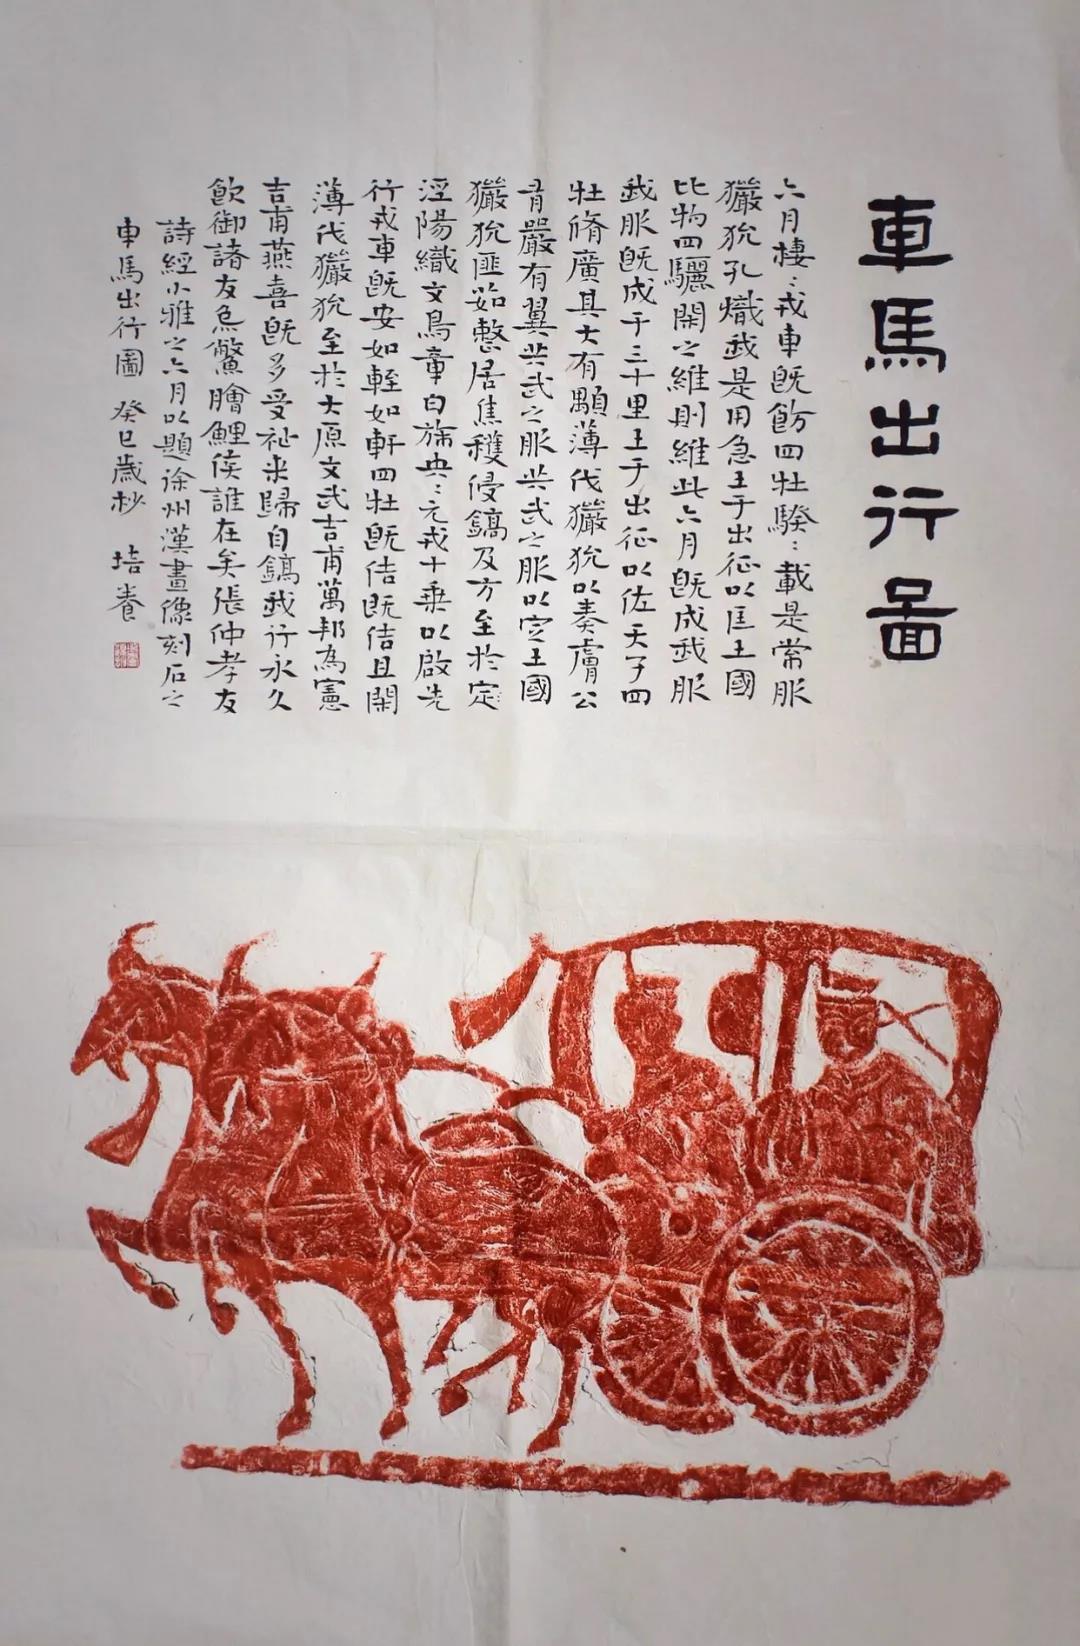 車馬出行圖
六月棲：戎車既飭四牡騤：載是常服
玁狁孔熾我是用急王于出征以匡王國
比物四驪閑之維則維此六月既成我服
我服既成于三十里王于出征以佐天子四
牡脩廣其大有顒薄伐玁狁以奏膚公
有嚴有翼共武之服共武之服以定王國
玁狁匪茹整居焦穫侵鎬及方至於定
涇陽織文鳥章白旆央：元戎十乘以啟先
行戎車既安如輊如軒四牡既佶既佶且閑
薄伐玁狁至於大原文武吉甫萬邦為憲
吉甫燕喜既多受祉來歸自鎬我行永久
飲御諸友炰鱉膾鯉侯誰在矣張仲孝友
詩經小雅之六月以題徐州漢畫像刻石之
車馬出行圖 癸巳歲杪 培養